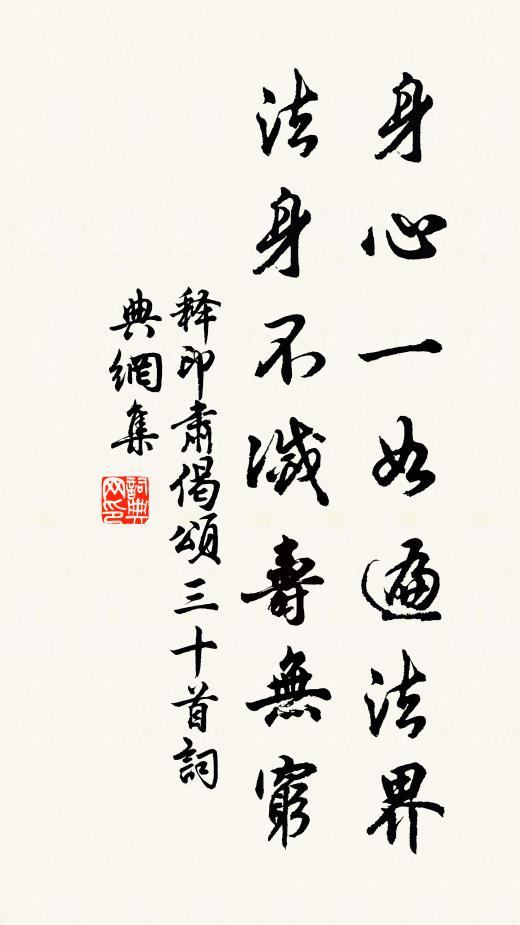 身心一如遍法界
法身不滅壽無窮
释印肃偈頌三十首詞
典網集
詞典网印